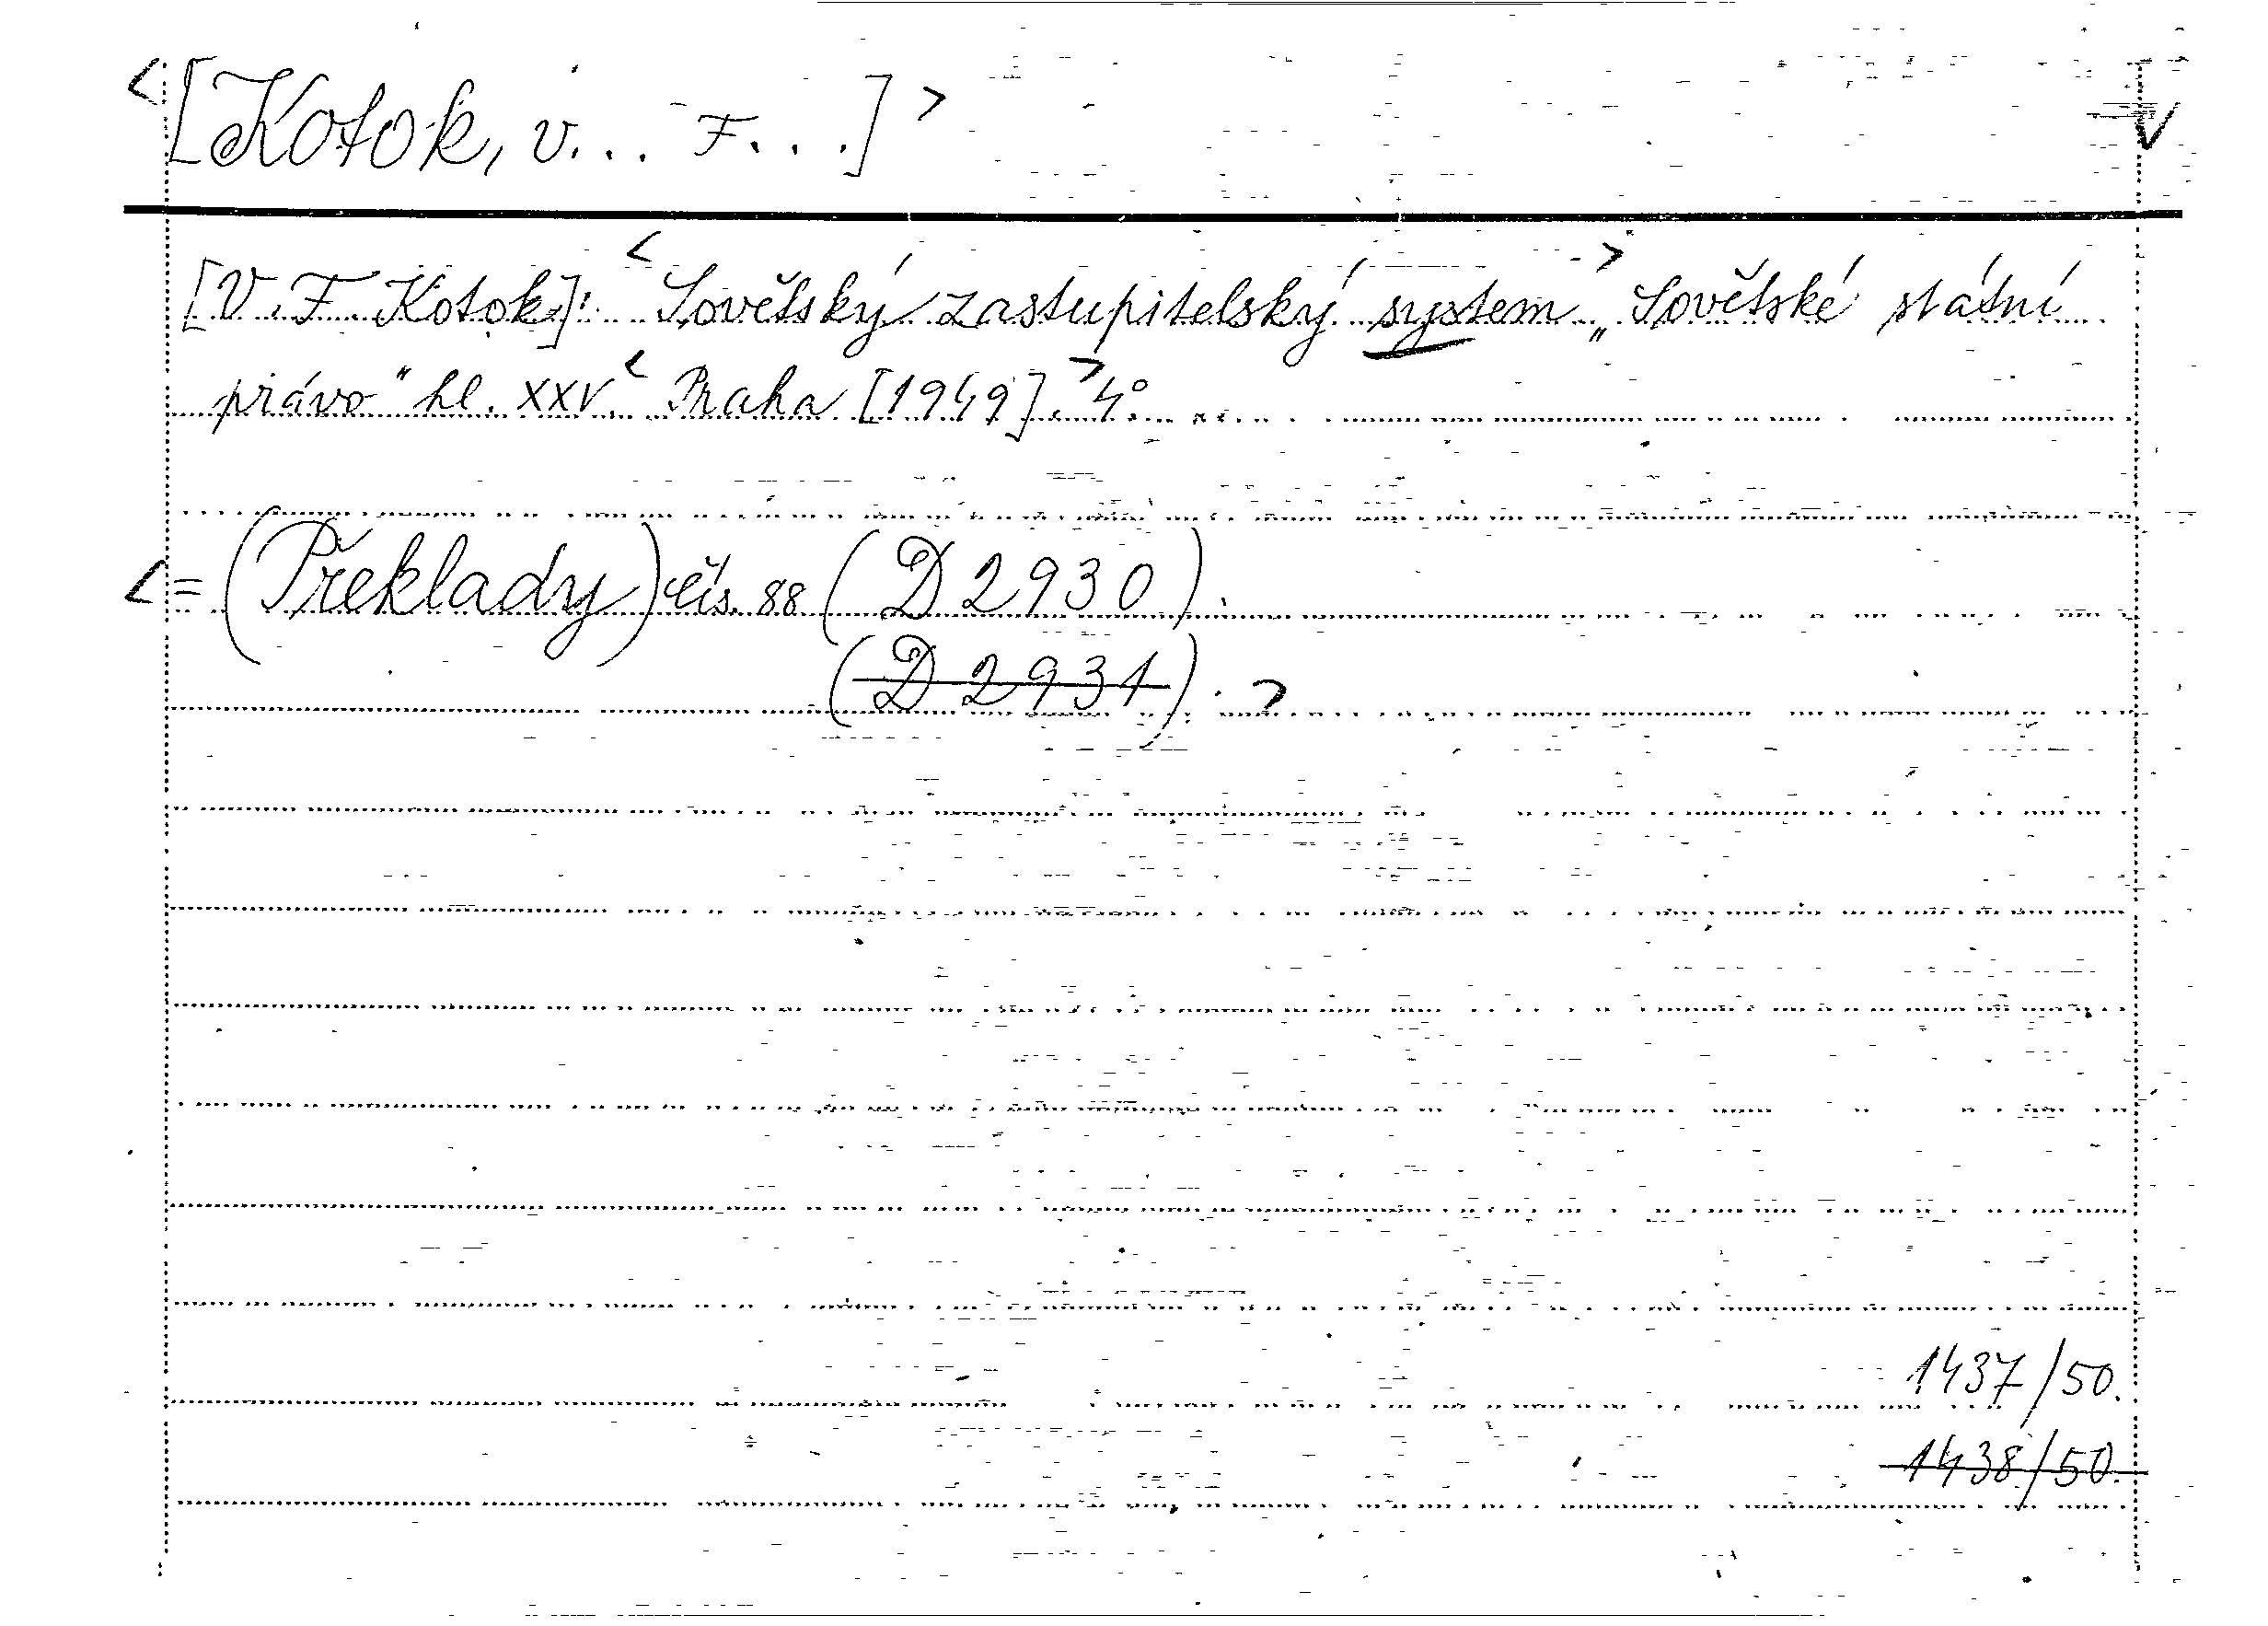 <[Kotok, V... F...]> V
[V. F. Kotok]: <Sovětský zastupitelský system> „Sovětské státní
právo“ hl. XXV. <Praha [1949].> 4°.
<= (Překlady) čís. 88 (D 2930).
(D 2931). >
1437/50.
1438/50.